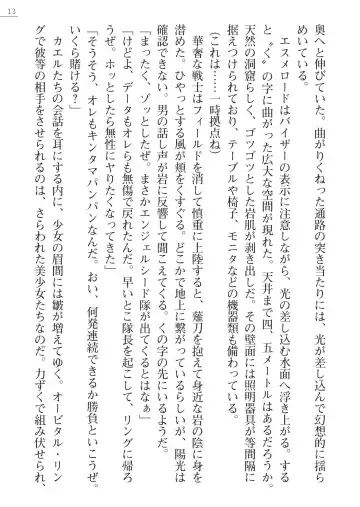 13
奥へと伸びていた。曲がりくねった通路の突き当たりには、光が差し込んで幻想的に揺ら
めいている。
エスメロードはバイザーの表示に注意しながら、光の差し込む水面へ浮き上がる。する
と〝く〟の字に曲がった広大な空間が現れた。天井まで四、五メートルはあるだろうか。
天然の洞窟らしく、ゴツゴツとした岩肌が剥き出しだ。その壁面には照明器具が等間隔に
据えつけられており、テーブルや椅子、モニタなどの機器類も備わっている。
(これは……一時拠点ね)
華奢な戦士はフィールドを消して慎重に上陸すると、薙刀を抱えて身近な岩の陰に身を
潜めた。ひやっとする風が頬をくすぐる。どこかで地上に繋がっているらしいが、陽光は
確認できない。男の話し声が岩に反響して聞こえてくる。くの字の先にいるようだ。
「まったく、ゾッとしたぜ。まさかエンジェルシード隊が出てくるとはなぁ」
「けどよ、データもオレらも無傷で戻れたんだ。早いとこ隊長を起こして、リングに帰ろ
うぜ。ホッとしたら無性にヤりたくなってきた」
「そうそう、オレもキンタマパンパンなんだ。おい、何発連続できるか勝負といこうぜ。
いくら賭ける?」
カエルたちの会話を耳にする内に、少女の眉間には皺が増えてゆく。オービタル・リン
グで彼等の相手をさせられるのは、さらわれた美少女たちなのだ。力ずくで組み伏せられ、